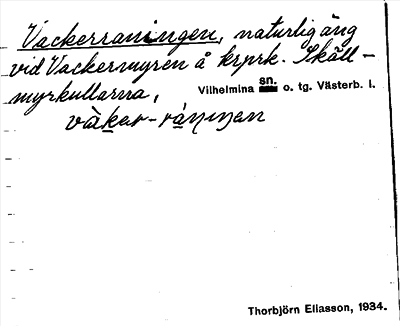 Vackerraningen, naturlig äng
vid Vackermyren å krprk. Skäll-
myrkullarna,
Vilhelmina sn. o. tg. Västerb. l.
vàkar-rániŋan
Thorbjörn Eliasson, 1934.